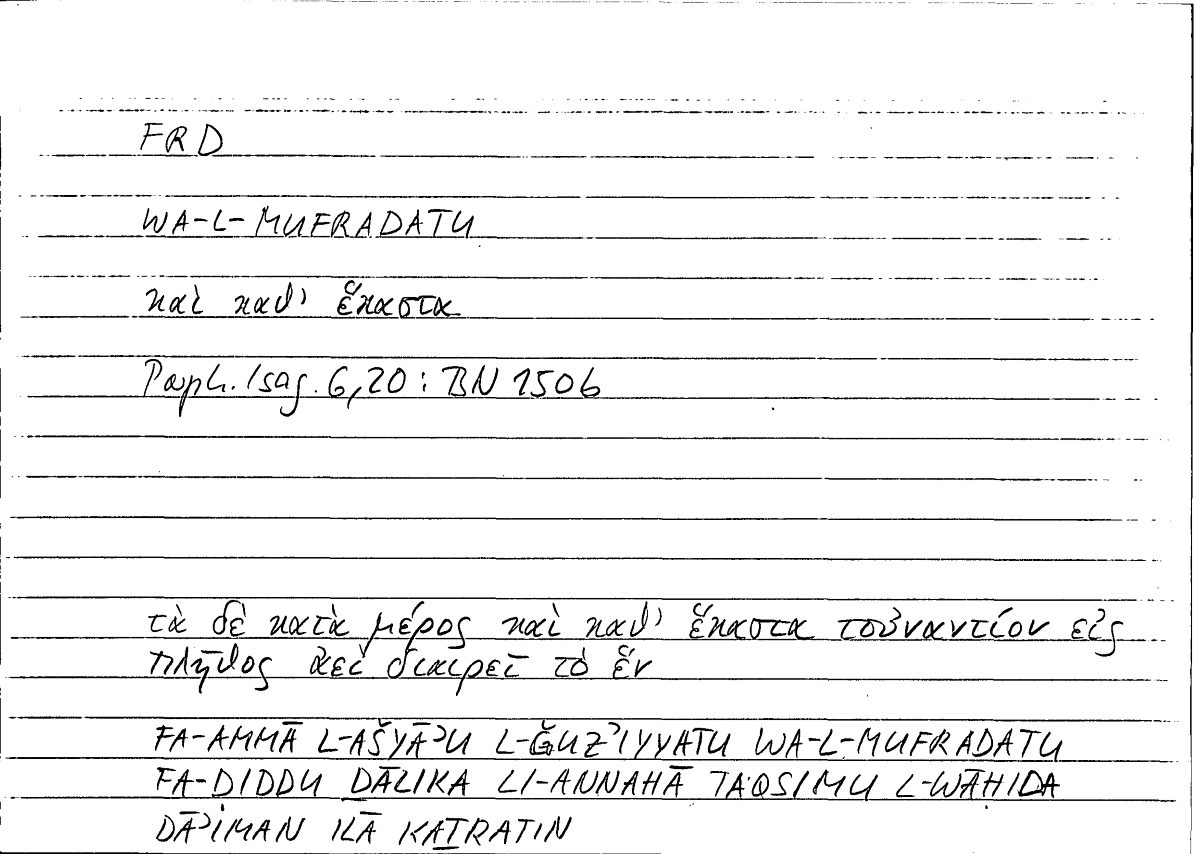 FRD
WA-L-MUFRADATU
καὶ καθ' ἕκαστα
Porph. Isag. 6,20 : BN 1506
τὰ δὲ κατὰ μέρος καὶ καθ' ἕκαστα τοὐναντίον εἰς
πλῆθος ἀεὶ διαιρεῖ τὸ ἕν
FA-AMMĀ L-AŠYĀʾU L-ǦUZʾIYYATU WA-L-MUFRADATU
FA-ḌIDDU ḎĀLIKA LI-ANNAHĀ TAQSIMU L-WĀḤIDA
DĀʾIMAN ILĀ KAṮRATIN